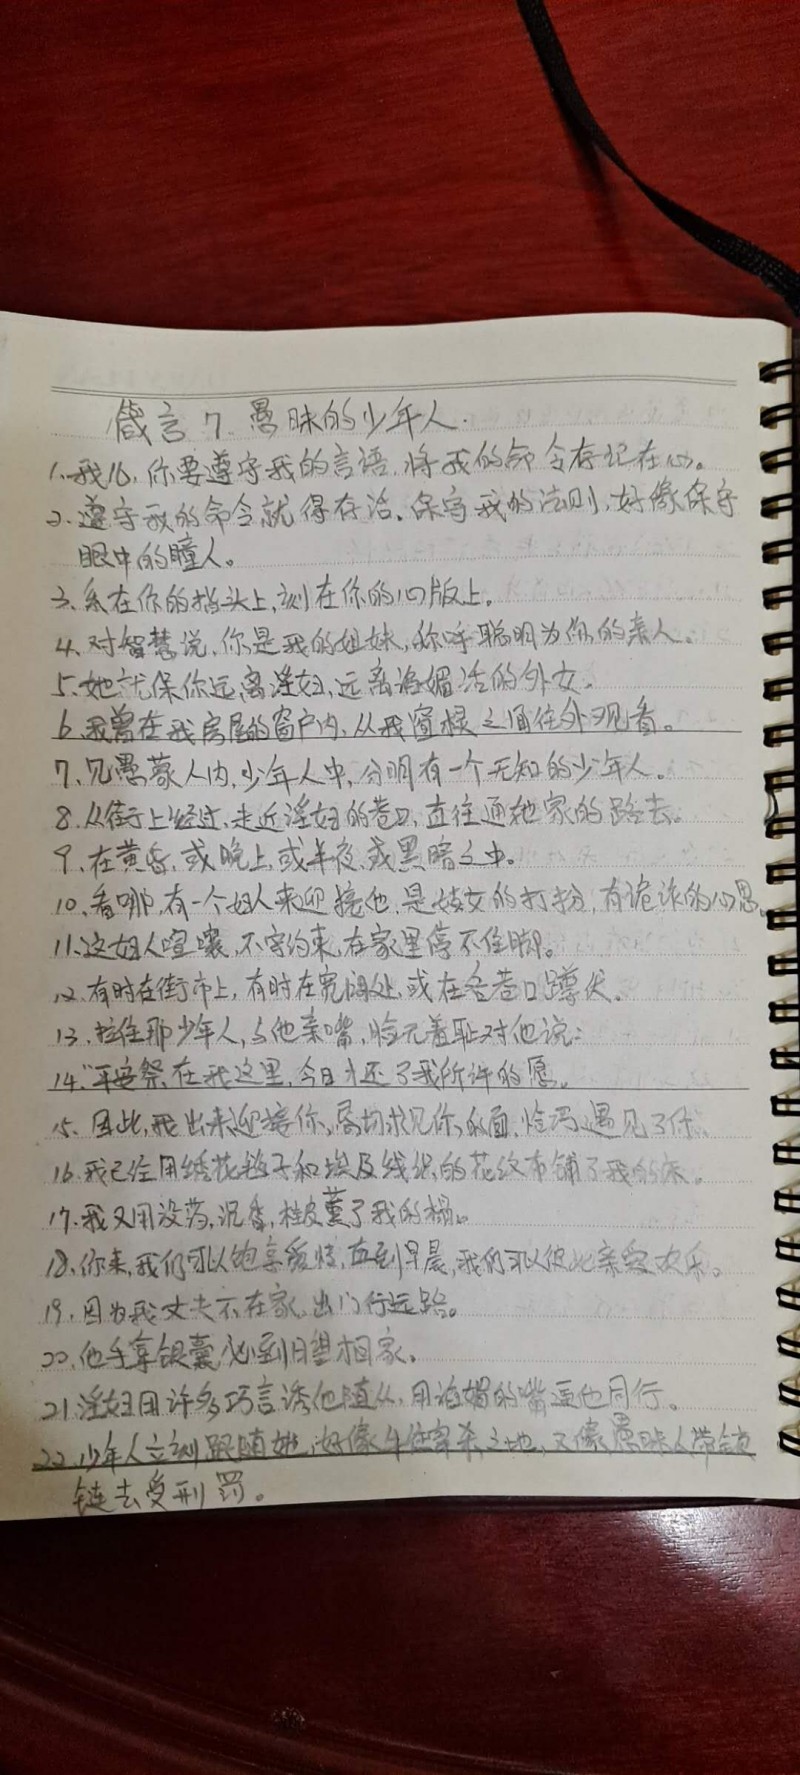 箴言 7. 愚昧的少年人.
1. 我儿, 你要遵守我的言语, 将我的命令存记在心。
2. 遵守我的命令就得存活。保守我的法则, 好像保守
眼中的瞳人。
3. 系在你的指头上, 刻在你的心版上。
4. 对智慧说, 你是我的姐妹, 称呼聪明为你的亲人。
5. 她就保你远离淫妇, 远离谄媚话的外女。
6. 我曾在我房屋的窗户内, 从我窗棂之间往外观看。
7. 见愚蒙人内, 少年人中, 分明有一个无知的少年人。
8. 从街上经过, 走近淫妇的巷口, 直往通她家的路去。
9. 在黄昏, 或晚上, 或半夜, 或黑暗之中。
10. 看哪, 有一个妇人来迎接他, 是妓女的打扮, 有诡诈的心思。
11. 这妇人喧嚷, 不守约束, 在家里停不住脚。
12. 有时在街市上, 有时在宽阔处, 或在各巷口蹲伏。
13. 拉住那少年人, 与他亲嘴, 脸无羞耻对他说:
14. “平安祭, 在我这里, 今日才还了我所许的愿。
15. 因此, 我出来迎接你, 恳切求见你的面, 恰巧遇见了你。
16. 我已经用绣花毯子和埃及线织的花纹布铺了我的床。
17. 我又用没药, 沉香, 桂皮薰了我的榻。
18. 你来, 我们可以饱享爱情, 直到早晨, 我们可以彼此亲爱欢乐。
19. 因为我丈夫不在家, 出门行远路。
20. 他手拿银囊, 必到月望相家。
21. 淫妇用许多巧言诱他随从, 用谄媚的嘴逼他同行。
22. 少年人立刻跟随她, 好像牛往宰杀之地, 又像愚昧人带锁
链去受刑罚。